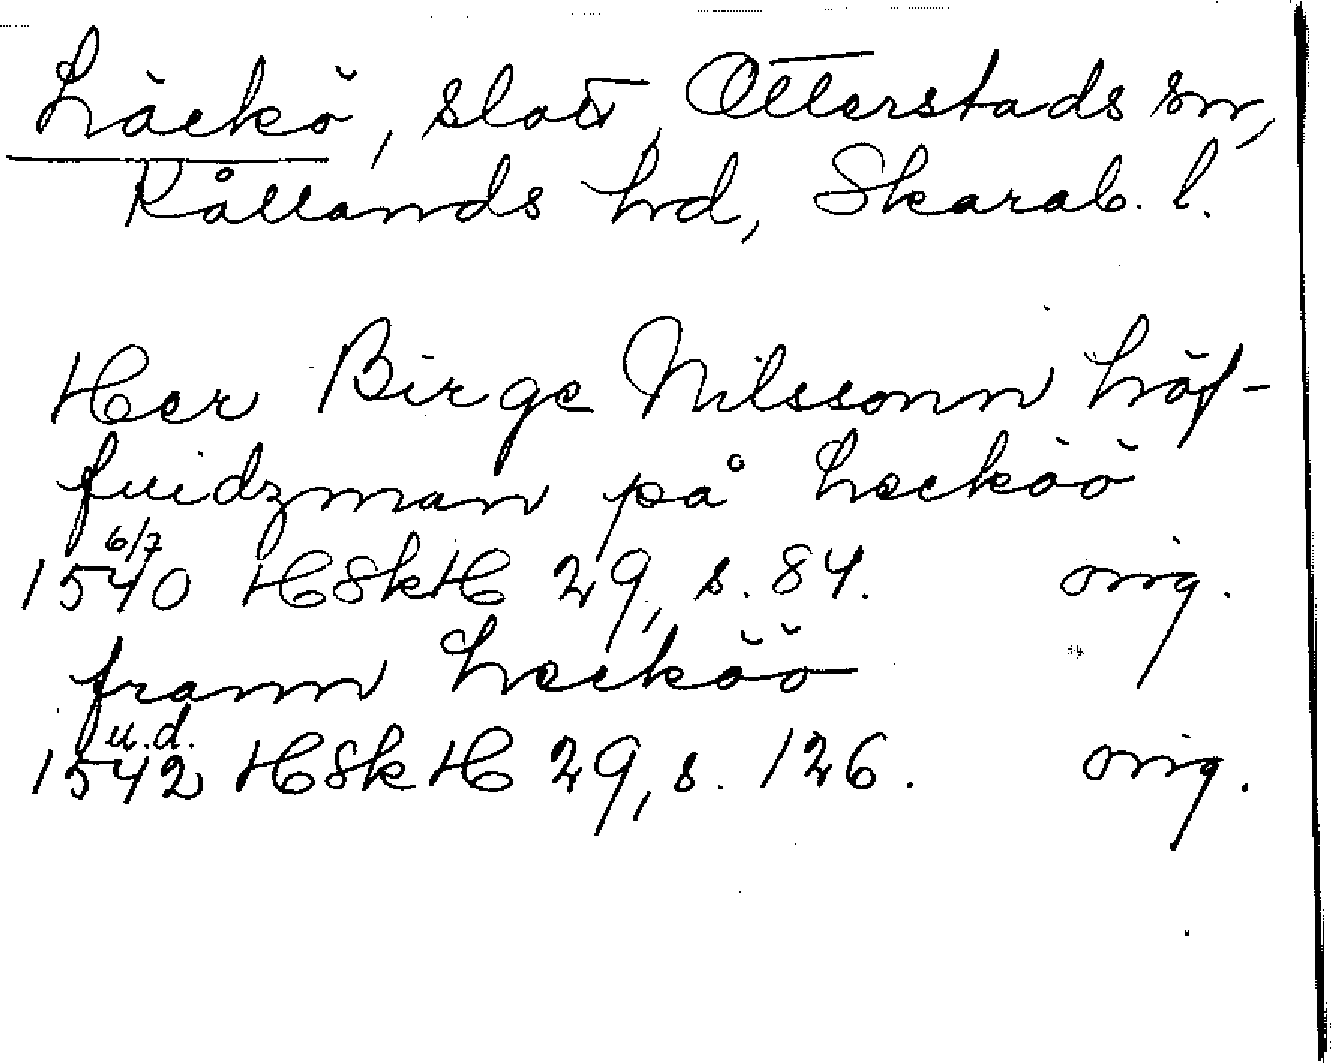 Läckö, slott, Otterstads sn,
Kållands hd, Skarab. l.
Her Birge Nilssonn höf-
fuidzman på Lecköö
6/7
1540 HSkH 29, s. 84. orig.
frann Lecköö
u.d.
1542 HSkH 29, s. 126. orig.